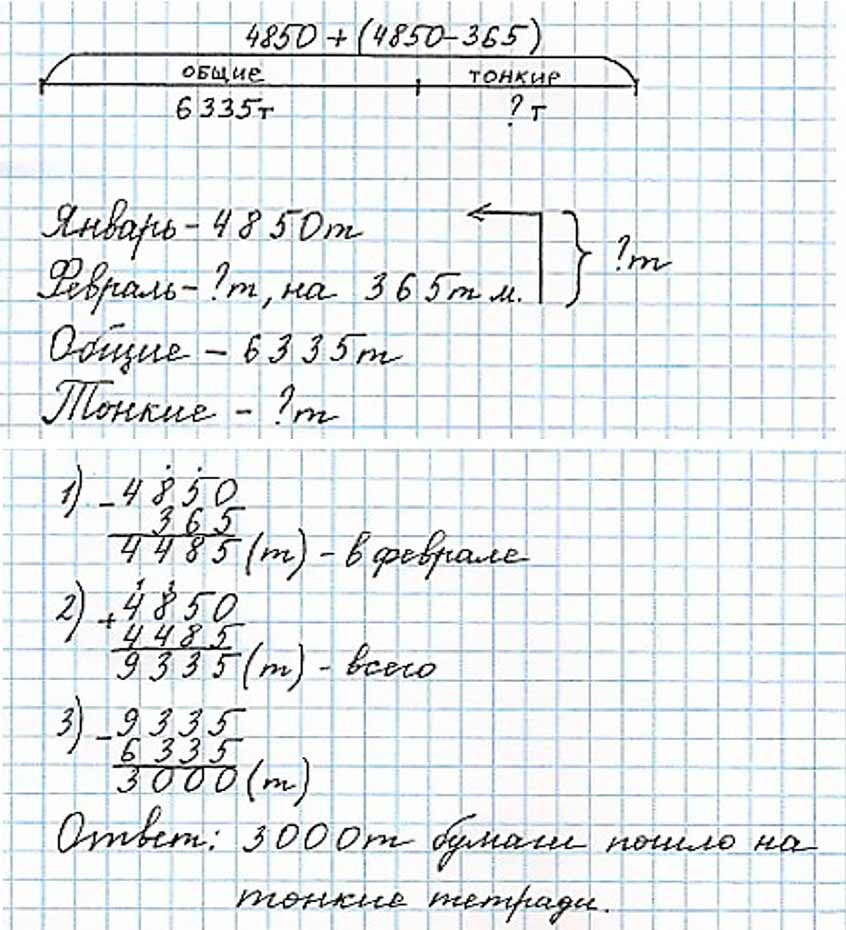 4850 + (4850-365)
общие тонкие
6335т ? т
Январь - 4850т
Февраль - ?т, на 365т м. ?т
Общие - 6335т
Тонкие - ?т
1) - 4850
365
4485 (т) - в феврале
2) + 4850
4485
9335 (т) - всего
3) - 9335
6335
3000 (т)
Ответ: 3000т бумаги пошло на
тонкие тетради.